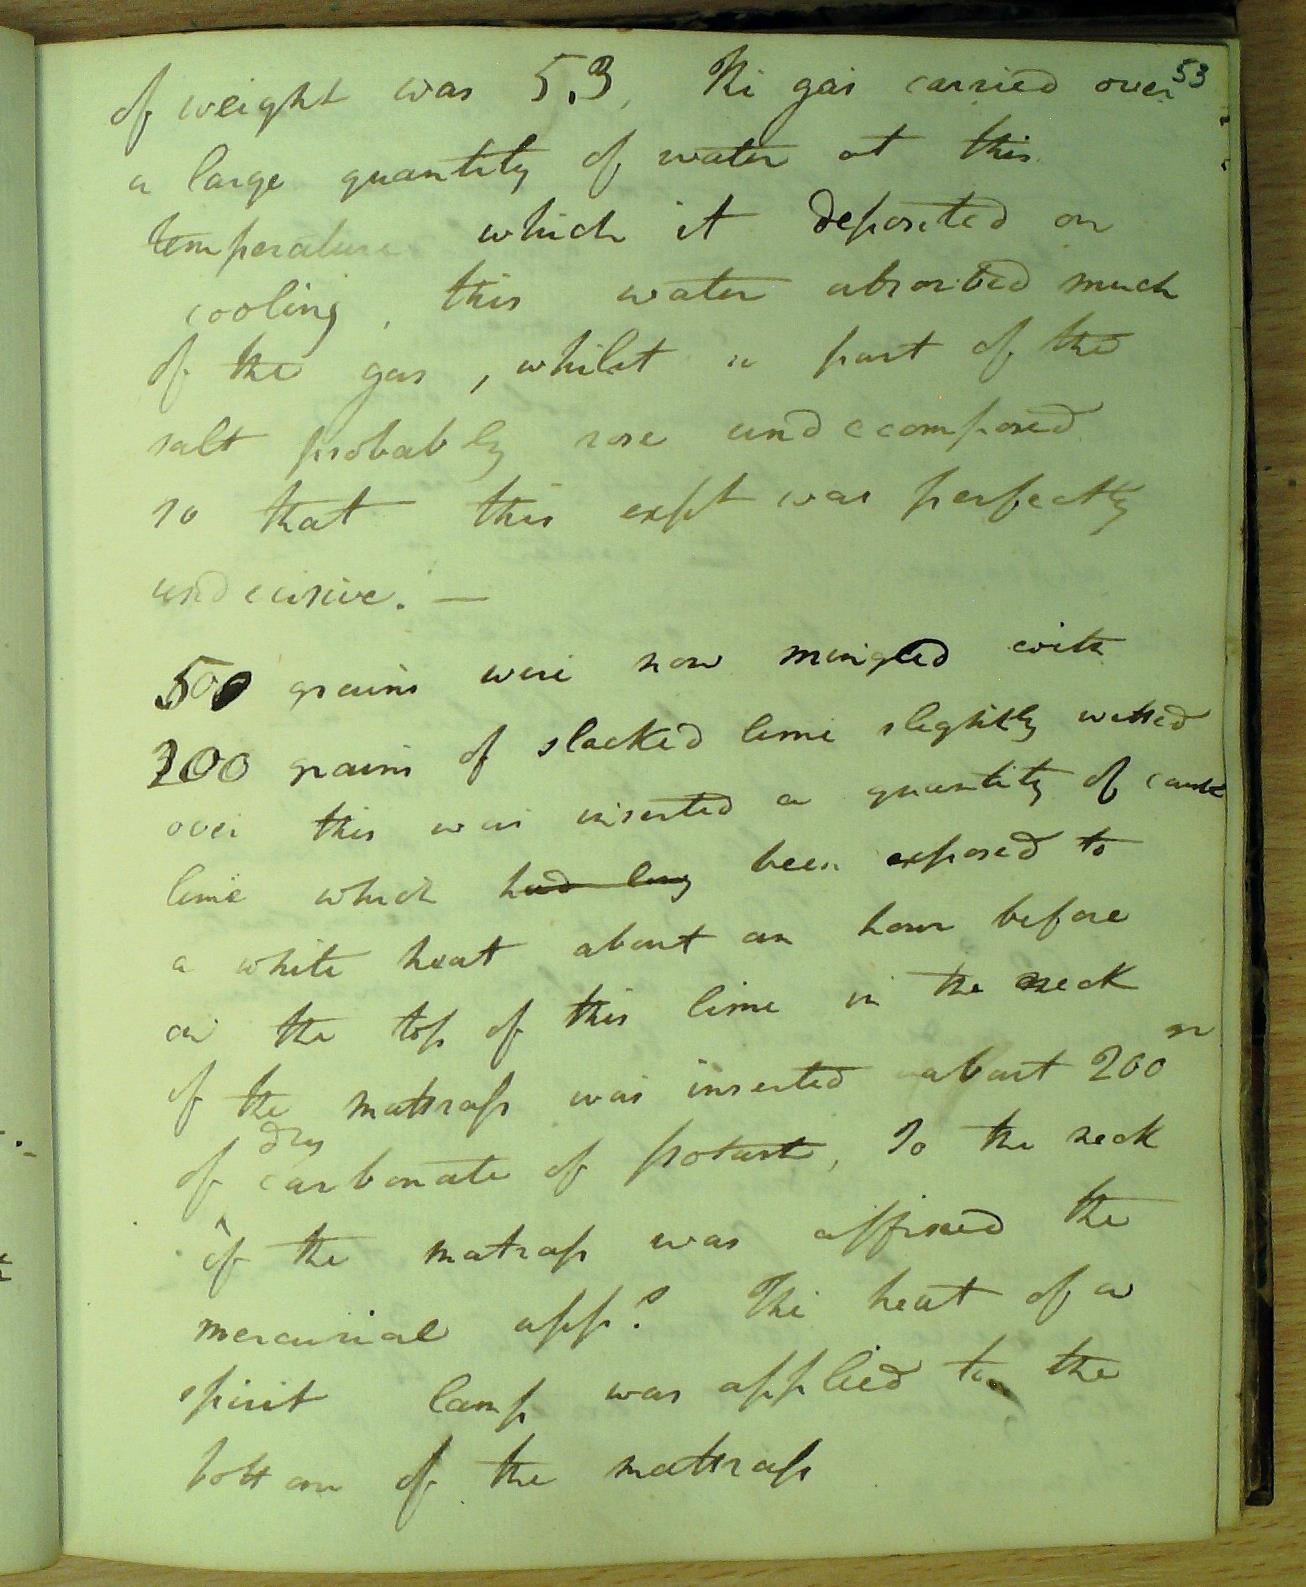 53
of weight was 5.3, The gas carried over
a large quantity of water at this
temperature which it deposited on
cooling, this water absorbed much
of the gas, whilst a part of the
salt probably rose undecomposed
so that this expt was perfectly
undecisive. —
500 grains were now mingled with
200 grains of slacked lime slightly wetted
over this was inserted a quantity of
lime which had long been exposed to
a white heat about an hour before
on the top of this lime in the neck
of the mattrass was inserted about 200 gr
of dry carbonate of potash, To the neck
of the matrass was affixed the
mercurial apps. The heat of a
spirit lamp was applied to the
bottom of the mattrass